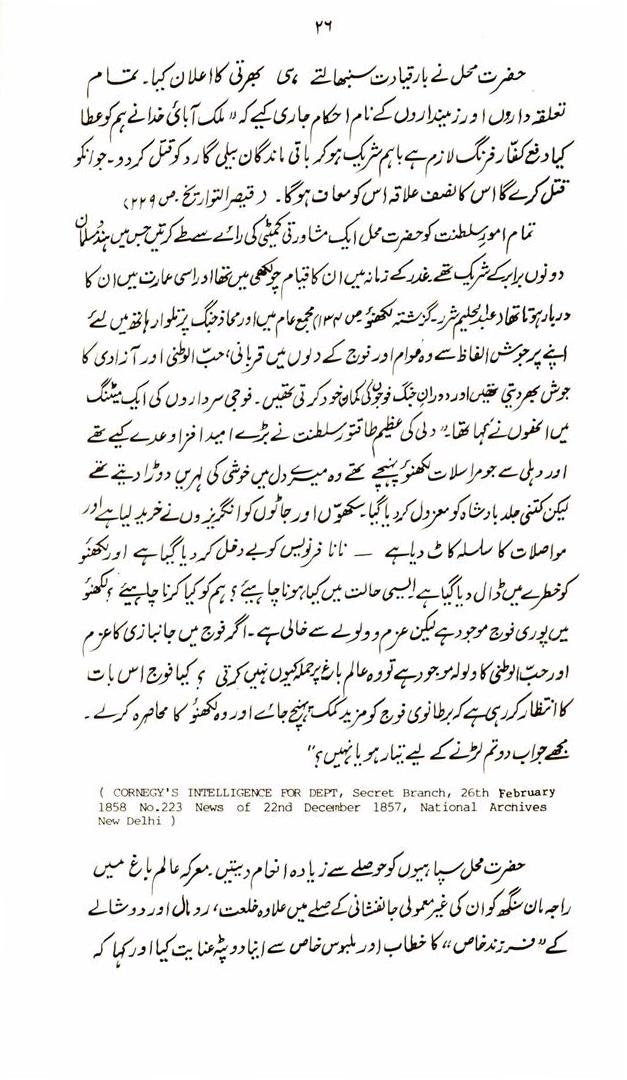 ۲۶
حضرت محل نے بار قیادت سنبھالتے ہی بھرتی کا اعلان کیا۔ تمام
تعلقہ داروں اور زمینداروں کے نام احکام جاری کیے کہ "ملک آبائی خدا نے ہم کو عطا
کیا دفع کفار فرنگ لازم ہے باہم شریک ہو کر باقی ماندگان بیلی گارد کو قتل کر دو۔ جو انکو
قتل کرے گا اس کا نصف علاقہ اس کو معاف ہوگا۔ (قیصر التواریخ۔ ص ۲۲۹)
تمام امور سلطنت کو حضرت محل ایک مشاورتی کمیٹی کی رائے سے طے کرتیں جس میں ہندو مسلمان
دونوں برابر کے شریک تھے۔ غدر کے زمانہ میں ان کا قیام چولکھی میں تھا اور اسی عمارت میں ان کا
دربار ہوتا تھا (عبدالحلیم شرر۔ گزشتہ لکھنؤ ص ۱۳۴) مجمع عام میں اور محاذ جنگ پر تلوار ہاتھ میں لئے
اپنے پر جوش الفاظ سے وہ عوام اور فوج کے دلوں میں قربانی، حب الوطنی اور آزادی کا
جوش بھر دیتی تھیں اور دوران جنگ فوجوں کی کمان خود کرتی تھیں۔ فوجی سرداروں کی ایک میٹنگ
میں انھوں نے کہا تھا۔ "دلی کی عظیم طاقتور سلطنت نے بڑے امید افزا وعدے کیے تھے
اور دہلی سے جو مراسلات لکھنؤ پہنچے تھے وہ میرے دل میں خوشی کی لہریں دوڑا دیتے تھے
لیکن کتنی جلد بادشاہ کو معزول کر دیا گیا سکھوں اور جاٹوں کو انگریزوں نے خرید لیا ہے اور
مواصلات کا سلسلہ کاٹ دیا ہے — نانا فرنویس کو بے دخل کر دیا گیا ہے اور لکھنؤ
کو خطرے میں ڈال دیا گیا ہے ایسی حالت میں کیا ہونا چاہیئے؟ ہم کو کیا کرنا چاہیئے؟ لکھنؤ
میں پوری فوج موجود ہے لیکن عزم و ولولے سے خالی ہے۔ اگر فوج میں جانبازی کا عزم
اور حب الوطنی کا ولولہ موجود ہے تو وہ عالم باغ پر حملہ کیوں نہیں کرتی؟ کیا فوج اس بات
کا انتظار کر رہی ہے کہ برطانوی فوج کو مزید کمک پہنچ جائے اور وہ لکھنؤ کا محاصرہ کرلے۔
مجھے جواب دو تم لڑنے کے لیے تیار ہو یا نہیں؟"
( CORNEGY'S INTELLIGENCE FOR DEPT, Secret Branch, 26th February
1858 No.223 News of 22nd December 1857, National Archives
New Delhi )
حضرت محل سپاہیوں کو حوصلے سے زیادہ انعام دیتیں۔ معرکہ عالم باغ میں
راجہ مان سنگھ کو ان کی غیر معمولی جانفشانی کے صلے میں علاوہ خلعت، رومال اور دوشالے
کے "فرزند خاص" کا خطاب اور ملبوس خاص سے اپنا دوپٹہ عنایت کیا اور کہا کہ